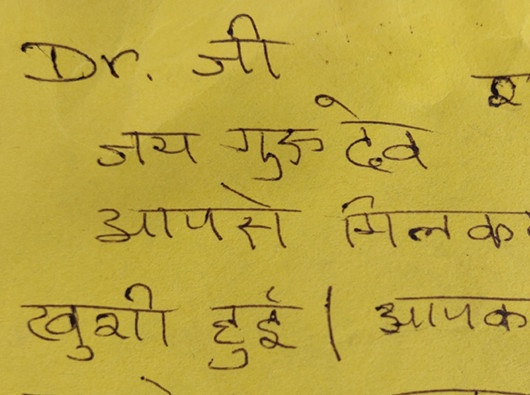 Dr. जी
जय गुरू देव
आपसे मिलक
खुशी हुई | आपक